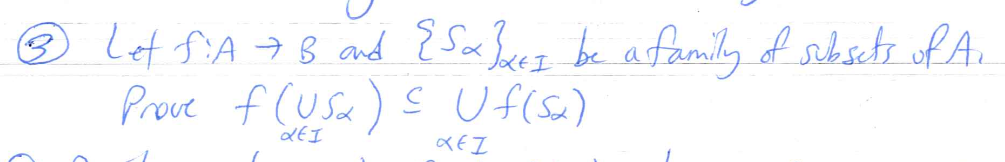 ③ Let f:A → B and {Sα}α∈I be a family of subsets of A.
Prove f(∪Sα) ⊆ ∪f(Sα)
α∈I α∈I